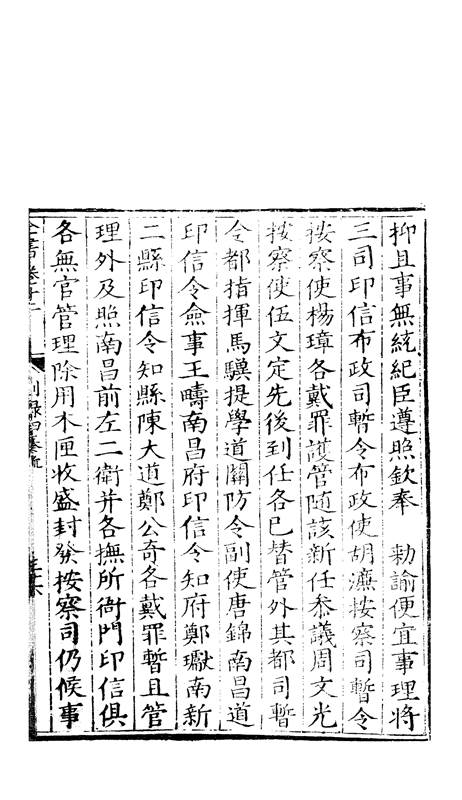 抑且事無統紀臣遵照欽奉　勑諭便宜事理將
三司印信布政司暫令布政使胡濂按察司暫令
按察使楊璋各戴罪護管隨該新任叅議周文光
按察使伍文定先後到任各已替管外其都司暫
令都指揮馬驥提學道關防令副使唐錦南昌道
印信令僉事王疇南昌府印信令知府鄭瓛南新
二縣印信令知縣陳大道鄭公奇各戴罪暫且管
理外及照南昌前左二衛并各撫所衙門印信俱
各無官管理除用木匣收盛封發按察司仍候事
全書卷十二
别錄四